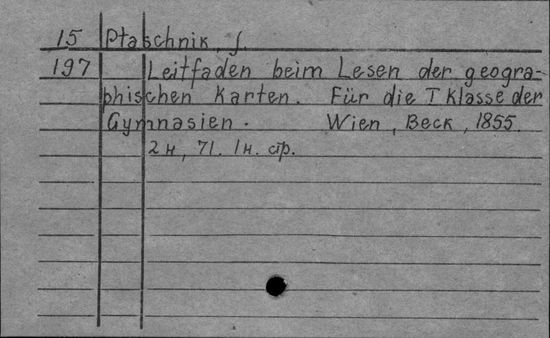 15 Ptaschnik, J.
197 Leitfaden beim Lesen der geogra-
phischen Karten. Für die I Klasse der
Gymnasien. Wien, Beck, 1855.
2 н, 71. 1 н. стр.